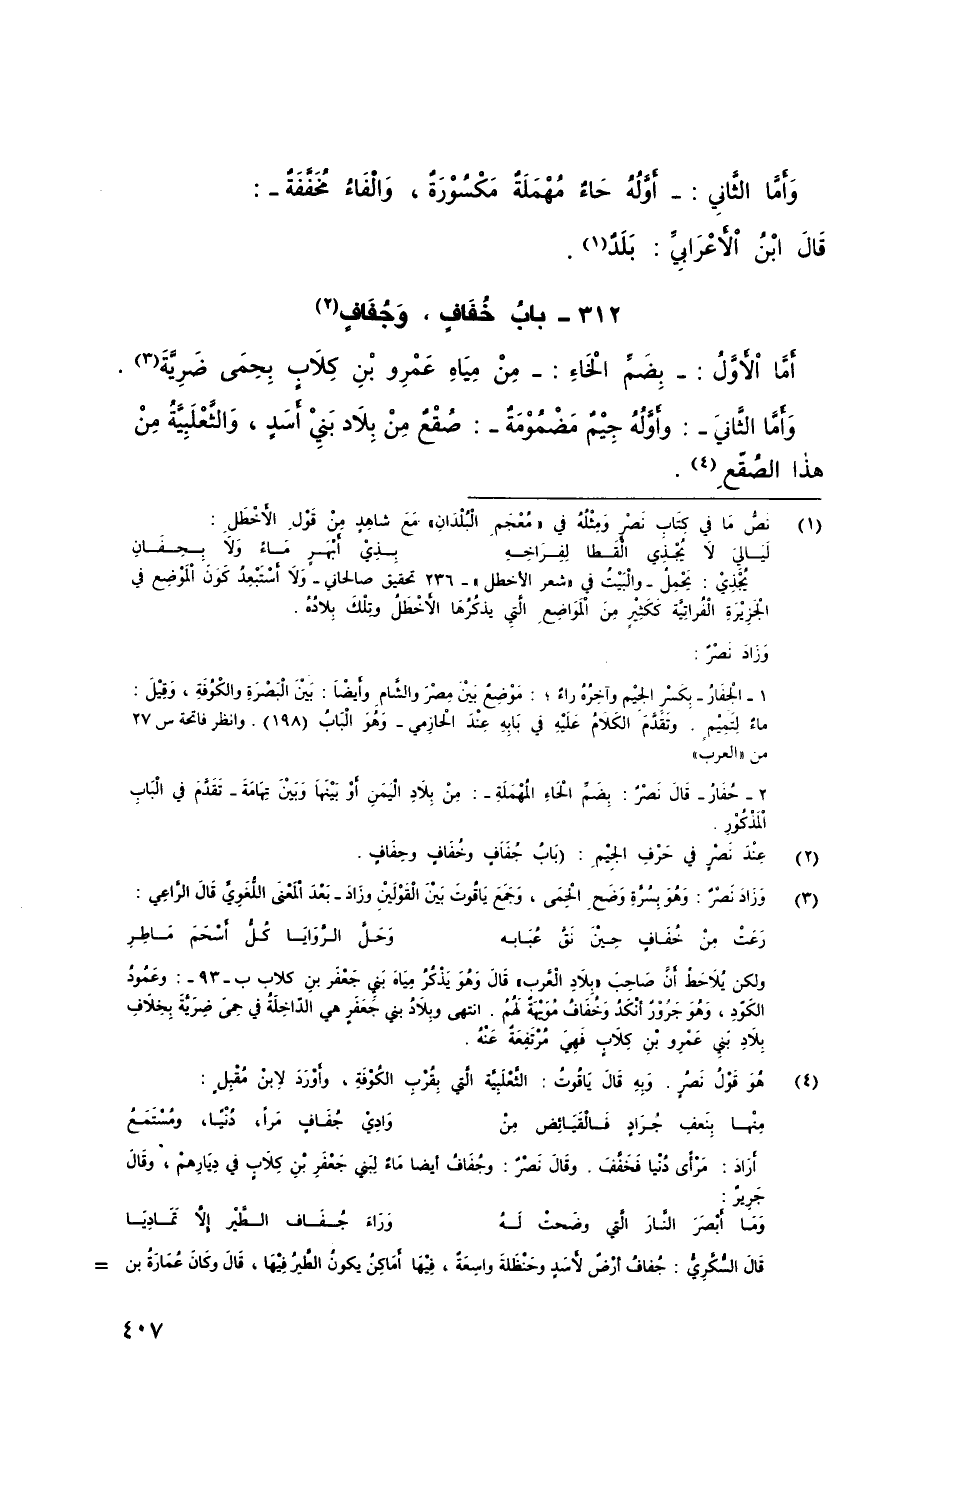 وَأَمَّا الثَّاني : ـ أَوَّلُهُ حَاءٌ مُهْمَلَةٌ مَكْسُوْرَةٌ ، وَالْفَاءُ مُخَفَّفَةٌ ـ :
قَالَ ابْنُ الْأَعْرَابِيِّ : بَلَدٌ(١) .
٣١٢ ـ بابُ خُفَافٍ ، وَجُفَافٍ(٢)
أَمَّا الْأَوَّلُ : ـ بِضَمِّ الْخَاءِ : ـ مِنْ مِيَاهِ عَمْرِو بْنِ كِلَابٍ بِحِمَى ضَرِيَّةَ(٣) .
وَأَمَّا الثَّانيَ ـ : وأَوَّلُهُ جِيْمٌ مَضْمُوْمَةٌ ـ : صُقْعٌ مِنْ بِلَاد بَنِيْ أَسَدٍ ، وَالثَّعْلَبِيَّةُ مِنْ
هذَا الصُقْعِ(٤) .
(١) نَصُّ مَا في كِتَابِ نَصْرٍ وَمِثْلُهُ في «مُعْجَمِ الْبُلْدَانِ» مَعَ شاهِدٍ مِنْ قَوْلِ الأَخْطَلِ :
لَيَاليَ لَا يُجْذِي الْقَطَا لِفِرَاخِهِ بِـذِيْ أَبْهَرٍ مَـاءً وَلَا بِـحِفَـانِ
يُجْذِيْ : يَحْمِلُ ـ والْبَيْتُ في «شعر الأخطل» ـ ٢٣٦ تحقيق صالحاني ـ وَلَا أَسْتَبْعِدُ كَونَ الْمَوْضِعِ في
الجَزِيْرَةِ الْفُراتِيَّة كَكَثِيْرٍ مِنَ الْمَوَاضِعِ الَّتِي يذكُرُهَا الأَخْطَلُ وتِلْكَ بِلَادُهُ .
وَزَادَ نَصْرٌ :
١ ـ الْجِفَارُ ـ بِكَسْرِ الجِيْمِ وآخِرُهُ راءٌ ؛ : مَوْضِعٌ بَيْنَ مِصْرَ والشَّامِ وأَيضاً : بَيْنَ الْبَصْرَةِ والْكُوْفَةِ ، وَقِيْلَ :
ماءٌ لِتَمِيْمٍ . وتَقَدَّمَ الكَلَامُ عَلَيْهِ في بَابِهِ عِنْدَ الحَازمِي ـ وَهُوَ الْبَابُ (١٩٨) . وانظر فاتحة س ٢٧
من «العرب»
٢ ـ حُفَارُ ـ قَالَ نَصْرٌ : بِضَمِّ الْحَاءِ الْمُهْمَلَةِ ـ : مِنْ بِلَادِ الْيَمَنِ أَوْ بَيْنَهَا وَبَيْنَ تِهَامَةَ ـ تَقَدَّمَ في الْبَابِ
الْمَذْكُوْرِ .
(٢) عِنْدَ نَصْرٍ في حَرْفِ الجِيْمِ : (بَابُ جُفَافٍ وخُفَافٍ وحِفَافٍ .
(٣) وَزَادَ نَصْرٌ : وَهُوَ بِسُرَّةِ وَضَحِ الْحِمَى ، وَجَمَعَ يَاقُوتُ بَيْنَ الْقَوْلَيْنِ وزَادَ ـ بَعْدَ الْمَعْنَى اللُّغَوِيِّ قَالَ الرَّاعِي :
رَعَتْ مِنْ خُفَافٍ حِيْنَ نَقَّ عُبَابـه وَحَلَّ الـرَّوَايَـا كُـلُّ أَسْحَمَ مَـاطِرِ
ولكن يُلَاحَظُ أَنَّ صَاحِبَ «بِلَادِ الْعَرَب» قَالَ وَهُوَ يَذْكُرُ مِيَاهَ بَنِي جَعْفَرِ بنِ كلاب ب ـ ٩٣ ـ : وعَمُودُ
الكَوْدِ ، وَهُوَ جَرُوْرٌ أَنْكَدُ وَخُفَافُ مُوَيْهَةٌ لَهُمْ . انتهى وبِلَادُ بني جَعْفَرٍ هي الدَّاخِلَةُ في حِمَى ضَرِيَّةَ بِخِلَافِ
بِلَادِ بَنِي عَمْرِو بْنِ كِلَابٍ فَهِيَ مُرْتَفِعَةٌ عَنْهُ .
(٤) هُوَ قَوْلُ نَصْرٍ . وَبِهِ قَالَ يَاقُوتُ : الثَّعْلَبِيَّة الَّتي بِقُرْبِ الْكُوْفَةِ ، وأَوْرَدَ لِابْنِ مُقْبِلٍ :
مِنْهَـا بِنَعفِ جُـرَادٍ فَـالْقَبَـائِضِ مِنْ وَادِيْ جُفَـافٍ مَرأَ، دُنْيَـا، ومُسْتَمَعُ
أَرَادَ : مَرْأَى دُنْيا فَخَفَّفَ . وقَالَ نَصْرٌ : وجُفَافُ أيضا مَاءٌ لِبَنِي جَعْفَرِ بْنِ كِلَابٍ في دِيَارِهِمْ ، وقَالَ
جَرِيرٌ :
وَمَا أَبْصَرَ النَّـارَ الَّتِي وضَحتْ لَـهُ وَرَاءَ جُـفَـافِ الـطَّيْرِ إِلَّا تَمَـادِيَـا
قَالَ السُّكَّرِيُّ : جُفافُ أرْضٌ لأَسَدٍ وحَنْظَلة واسِعَةٌ ، فِيْهَا أَمَاكِنُ يكونُ الطَّيرُ فِيْهَا ، قَالَ وكَانَ عُمَارَةُ بن =
٤٠٧